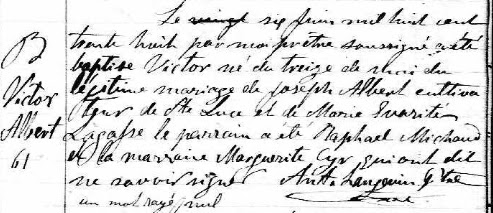 Le vingt six Juin mil huit cent
B
trente huit par moi prêtre soussigné a été
baptisé Victor né du treize de mai du
Victor
légitime mariage de Joseph Albert cultiva
Albert
teur de Ste Luce et de Marie Evarite
61
Lagasse le parrain a été Raphael Michaud
et la marraine Marguerite Cyr qui ont dit
ne savoir signer Ant. Langevin
un mot rayé nul